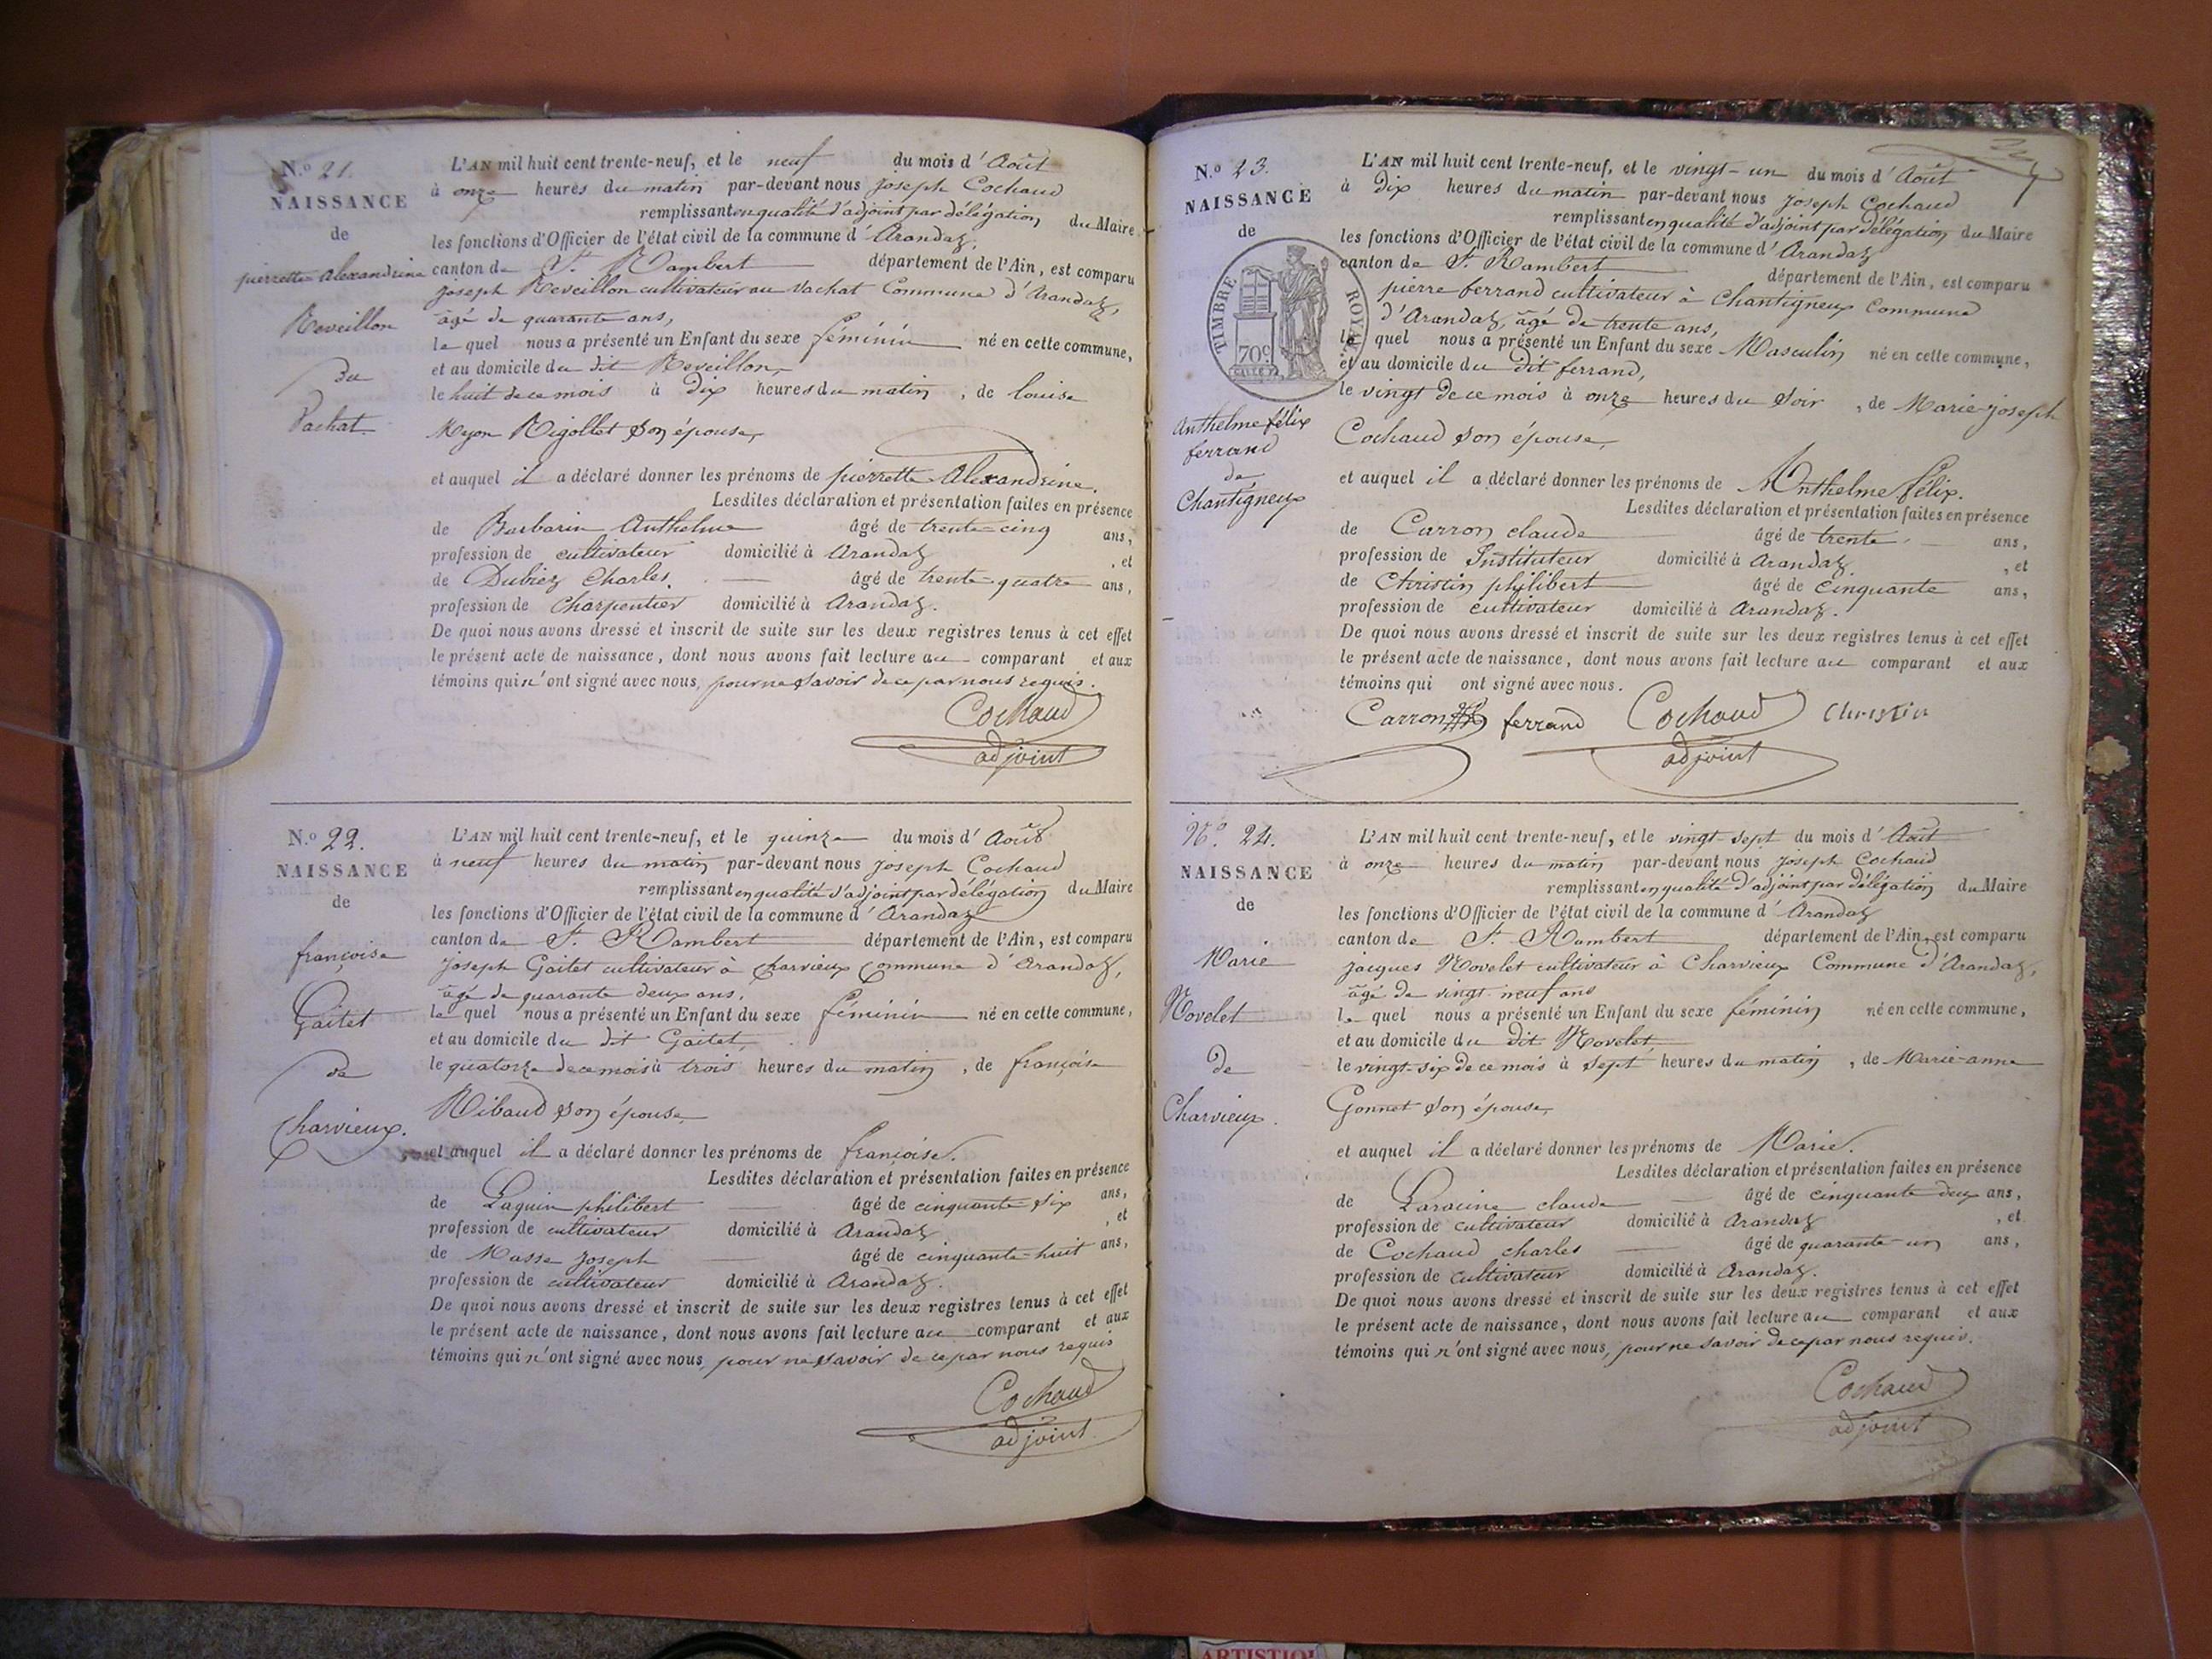 N.o 21.
NAISSANCE
de
pierrette alexandrine
Reveillon
du
Vachat.
L'AN mil huit cent trente-neuf, et le neuf du mois d'Août
à onze heures du matin par-devant nous joseph Cochaud
remplissant en qualité d'adjoint par délégation du Maire
les fonctions d'Officier de l'état civil de la commune d'Arandaz,
canton de St. Rambert département de l'Ain, est comparu
joseph Reveillon cultivateur au vachat Commune d'Arandaz,
âgé de quarante ans,
le quel nous a présenté un Enfant du sexe féminin né en cette commune,
et au domicile du dit Reveillon,
le huit de ce mois à dix heures du matin, de louise
Myon Rigollet son épouse,
et auquel il a déclaré donner les prénoms de pierrette Alexandrine.
Lesdites déclaration et présentation faites en présence
de Barbarin Anthelme âgé de trente-cinq ans,
profession de cultivateur domicilié à Arandaz, et
de Dubiez Charles. âgé de trente-quatre ans,
profession de Charpentier domicilié à Arandaz.
De quoi nous avons dressé et inscrit de suite sur les deux registres tenus à cet effet
le présent acte de naissance, dont nous avons fait lecture au comparant et aux
témoins qui n'ont signé avec nous, pour ne savoir de ce par nous requis.
Cochaud
adjoint
N.o 22.
NAISSANCE
de
françoise
Gaitet
de
Charvieux.
L'AN mil huit cent trente-neuf, et le quinze du mois d'Août
à neuf heures du matin par-devant nous joseph Cochaud
remplissant en qualité d'adjoint par délégation du Maire
les fonctions d'Officier de l'état civil de la commune d'Arandaz
canton de St. Rambert département de l'Ain, est comparu
joseph Gaitet cultivateur à Charvieux Commune d'Arandaz,
âgé de quarante deux ans.
le quel nous a présenté un Enfant du sexe féminin né en cette commune,
et au domicile du dit Gaitet,
le quatorze de ce mois à trois heures du matin, de françoise
Ribaud son épouse,
et auquel il a déclaré donner les prénoms de françoise.
Lesdites déclaration et présentation faites en présence
de Laquin philibert âgé de cinquante six ans,
profession de cultivateur domicilié à Arandaz, et
de Masse joseph âgé de cinquante-huit ans,
profession de cultivateur domicilié à Arandaz.
De quoi nous avons dressé et inscrit de suite sur les deux registres tenus à cet effet
le présent acte de naissance, dont nous avons fait lecture au comparant et aux
témoins qui n'ont signé avec nous, pour ne savoir de ce par nous requis
Cochaud
adjoint
N.o 23.
NAISSANCE
de
TIMBRE ROYAL
70c
Anthelme félix
ferrand
de
Chantigneux
L'AN mil huit cent trente-neuf, et le vingt-un du mois d'Août
à dix heures du matin par-devant nous joseph Cochaud
remplissant en qualité d'adjoint par délégation du Maire
les fonctions d'Officier de l'état civil de la commune d'Arandaz
canton de St. Rambert département de l'Ain, est comparu
pierre ferrand cultivateur à Chantigneux Commune
d'Arandaz, âgé de trente ans,
le quel nous a présenté un Enfant du sexe Masculin né en cette commune,
et au domicile du dit ferrand,
le vingt de ce mois à onze heures du soir, de Marie-joseph
Cochaud son épouse,
et auquel il a déclaré donner les prénoms de Anthelme félix.
Lesdites déclaration et présentation faites en présence
de Carron claude âgé de trente ans,
profession de Instituteur domicilié à Arandaz, et
de Christin philibert âgé de cinquante ans,
profession de cultivateur domicilié à Arandaz.
De quoi nous avons dressé et inscrit de suite sur les deux registres tenus à cet effet
le présent acte de naissance, dont nous avons fait lecture au comparant et aux
témoins qui ont signé avec nous.
Carron ferrand Cochaud Christin
adjoint
N.o 24.
NAISSANCE
de
Marie
Novelet
de
Charvieux.
L'AN mil huit cent trente-neuf, et le vingt-sept du mois d'Août
à onze heures du matin par-devant nous joseph Cochaud
remplissant en qualité d'adjoint par délégation du Maire
les fonctions d'Officier de l'état civil de la commune d'Arandaz
canton de St. Rambert département de l'Ain, est comparu
jacques Novelet cultivateur à Charvieux Commune d'Arandaz,
âgé de vingt-neuf ans
le quel nous a présenté un Enfant du sexe féminin né en cette commune,
et au domicile du dit Novelet
le vingt-six de ce mois à sept heures du matin, de Marie-anne
Gonnet son épouse,
et auquel il a déclaré donner les prénoms de Marie.
Lesdites déclaration et présentation faites en présence
de claude âgé de cinquante deux ans,
profession de cultivateur domicilié à Arandaz, et
de Cochaud charles âgé de quarante-un ans,
profession de cultivateur domicilié à Arandaz.
De quoi nous avons dressé et inscrit de suite sur les deux registres tenus à cet effet
le présent acte de naissance, dont nous avons fait lecture au comparant et aux
témoins qui n'ont signé avec nous, pour ne savoir de ce par nous requis.
Cochaud
adjoint